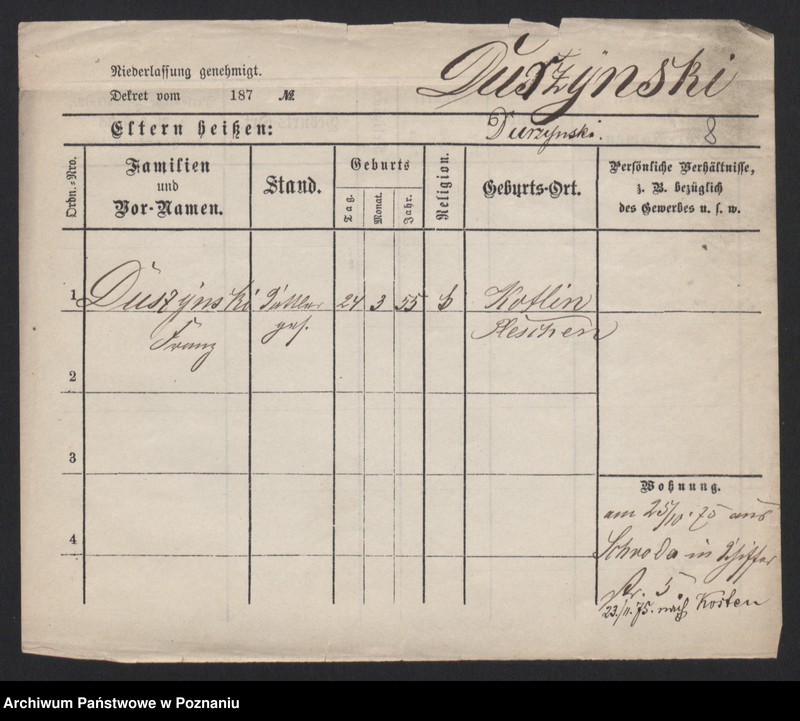 Niederlassung genehmigt.
Duszynski
Dekret vom 187 №
Eltern heißen:
Durzynski.
8
Ordn.=Nro.
Familien
und
Vor-Namen.
Stand.
Geburts
Tag.
Monat.
Jahr.
Religion.
Geburts-Ort.
Persönliche Verhältnisse,
z. B. bezüglich
des Gewerbes u. s. w.
1 Duszynski Sattler 24 3 55 k Kotlin
Franz ges. Pleschen
2
3
Wohnung.
am 25/10. 75 aus
4 Schroda in
Nr. 5
23./11. 75. nach Kosten
Archiwum Państwowe w Poznaniu